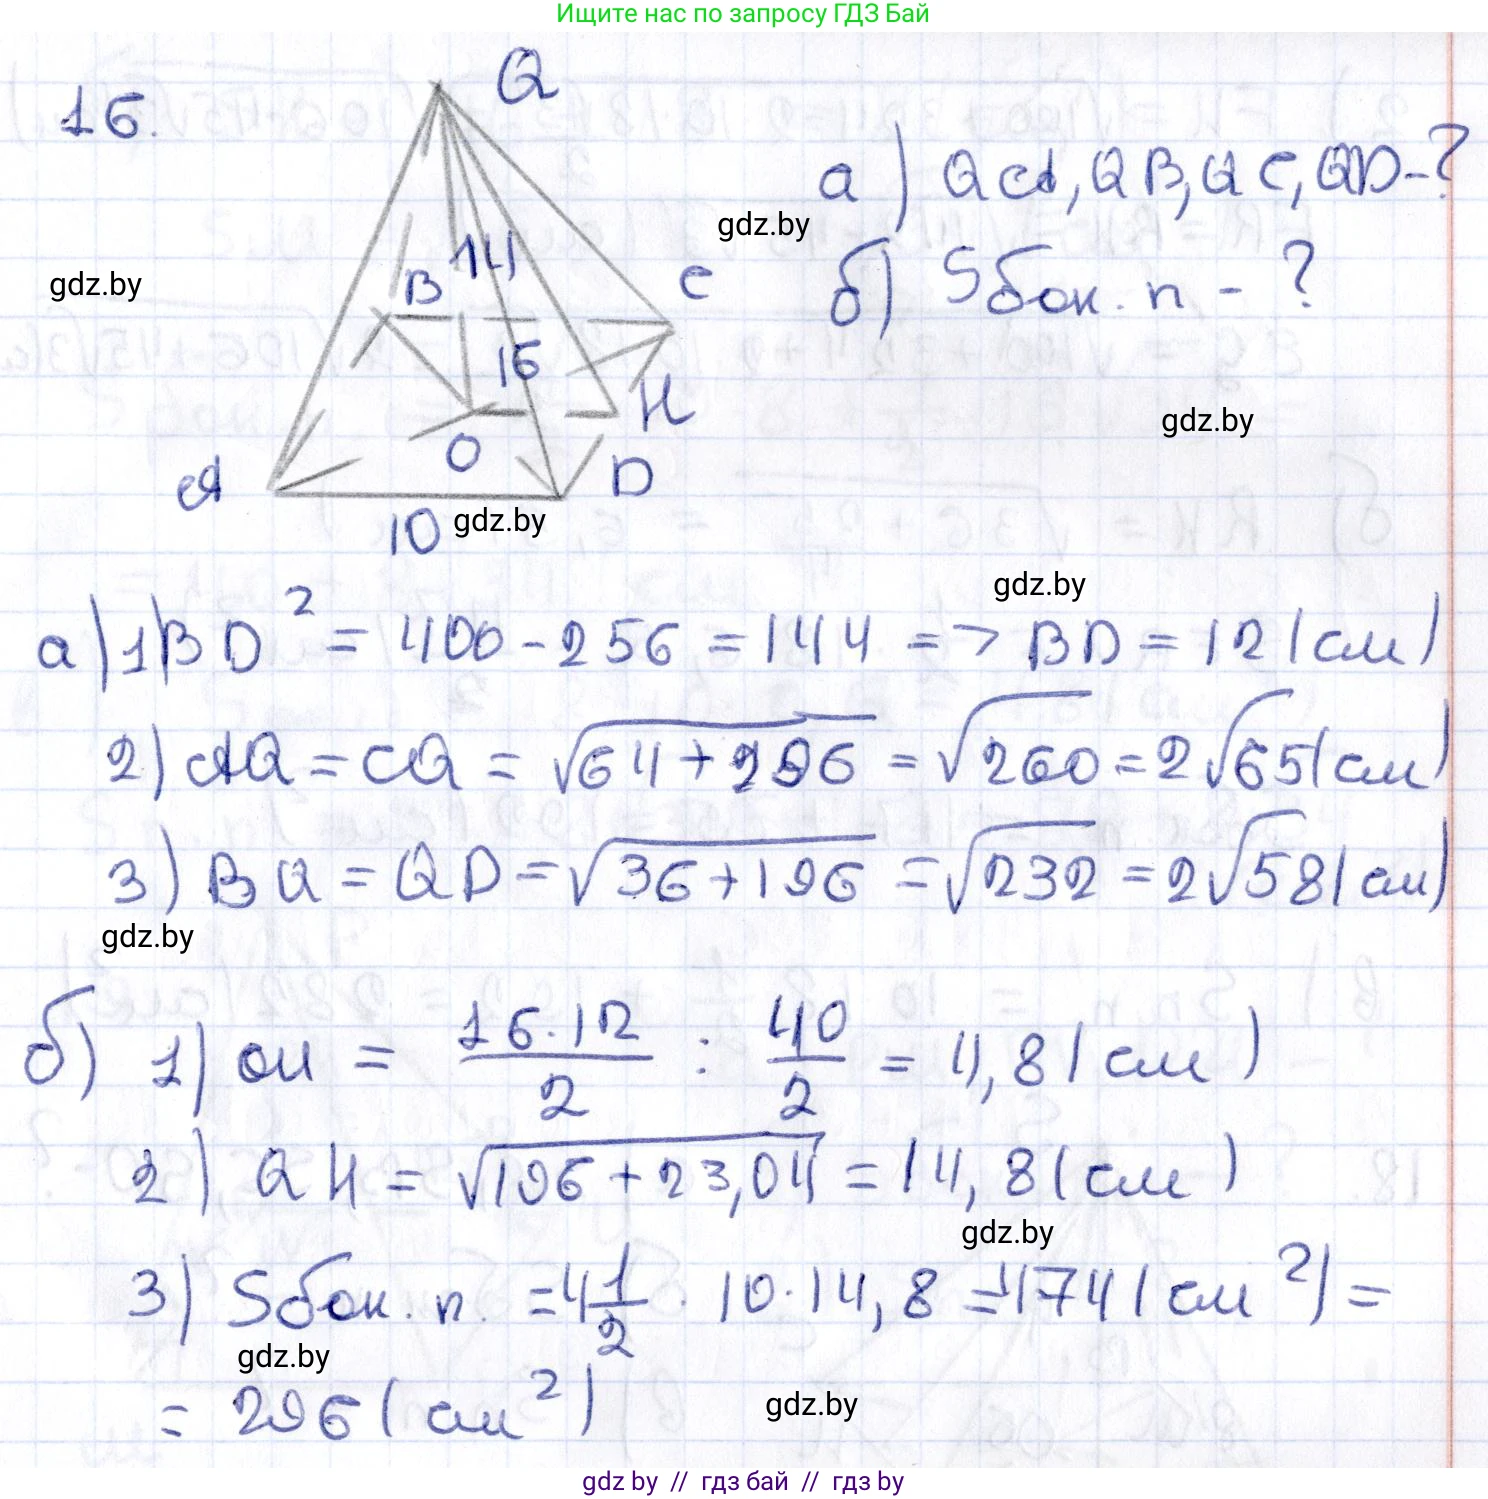 Ищите нас по запросу ГДЗ Бай
16.
Q
а) QA, QB, QC, QD - ?
gdz.by
б) Sбок. п - ?
gdz.by
14
B
C
16
H
gdz.by
O
A
D
10
gdz.by
gdz.by
а) 1) BD² = 400 - 256 = 144 => BD = 12 (см)
2) AQ = CQ = √64 + 196 = √260 = 2√65 (см)
3) BQ = QD = √36 + 196 = √232 = 2√58 (см)
gdz.by
б) 1) OH = 16·12/2 : 40/2 = 4,8 (см)
2) QH = √196 + 23,04 = 14,8 (см)
gdz.by
3) Sбок. п. = 4 1/2 · 10 · 14,8 = (см²) =
gdz.by
= 296 (см²)
gdz.by
gdz by // гдз бай // гдз by